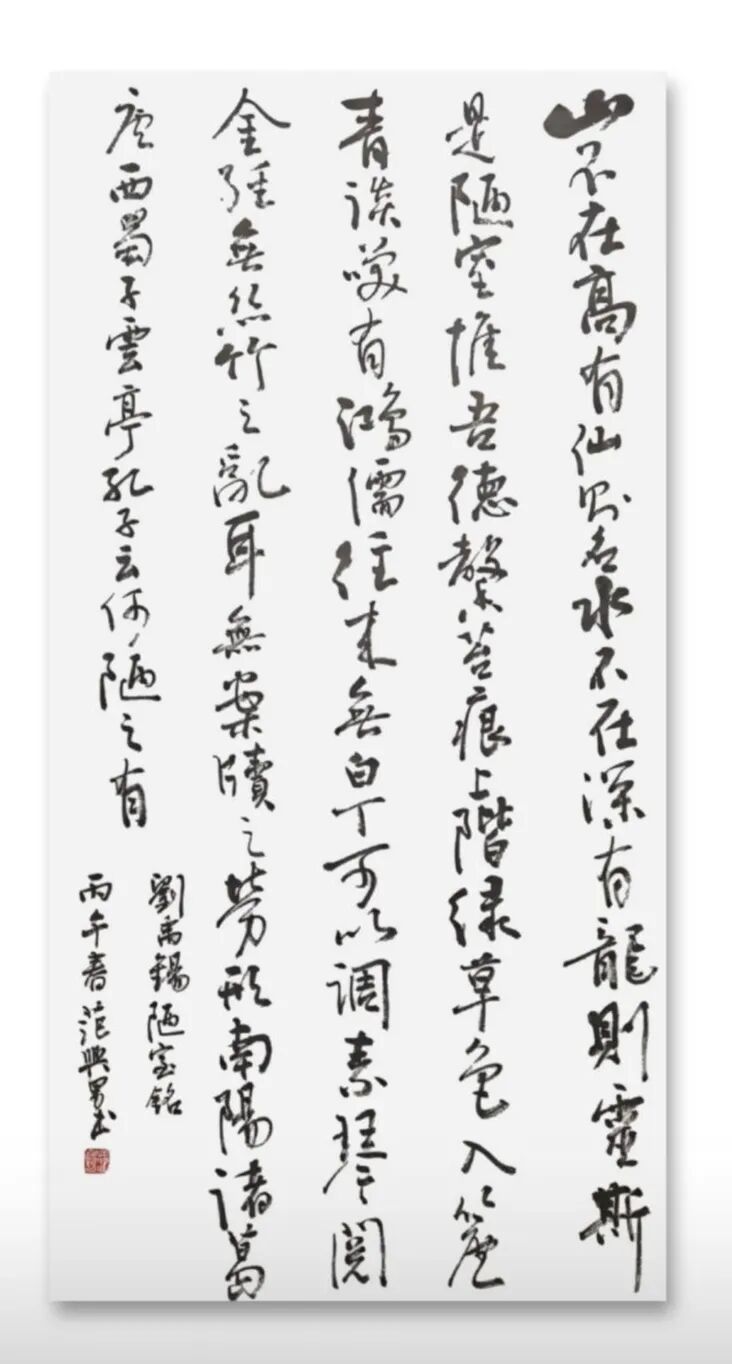 山不在高有仙则名水不在深有龍則靈斯
是陋室惟吾德馨苔痕上階绿草色入簾
青談唉有鴻儒往来無白丁可以调素琴閲
金經無丝竹之亂耳無案牘之勞形南陽諸葛
庐西蜀子雲亭孔子云何陋之有
劉禹錫陋室銘
丙午春范興男书